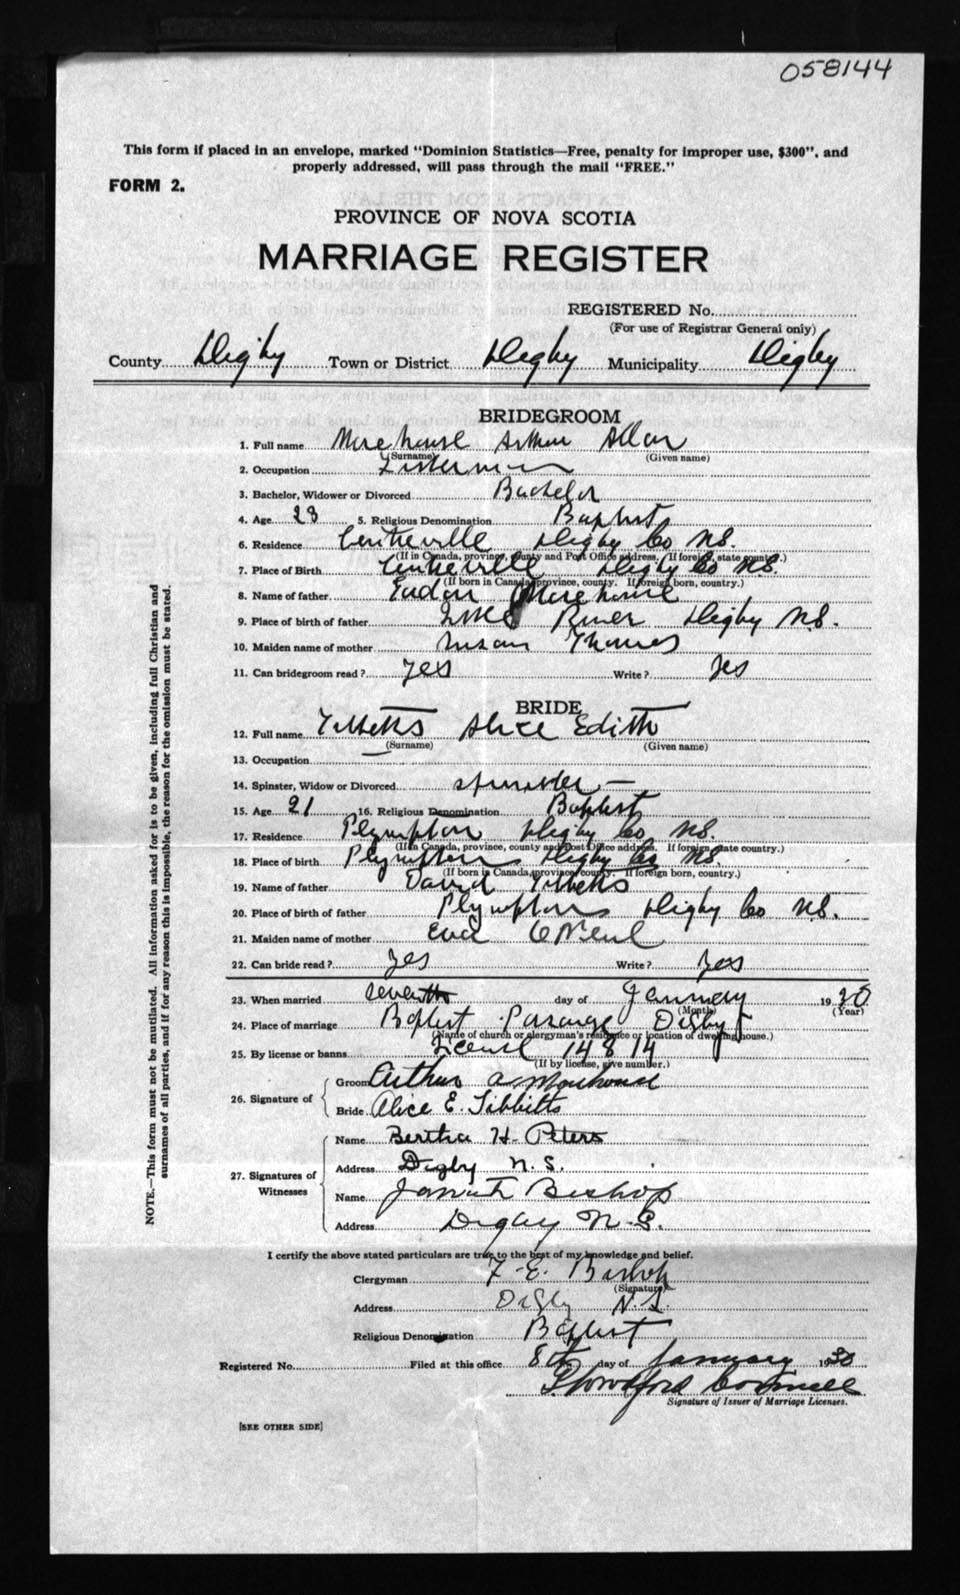 058144
This form if placed in an envelope, marked "Dominion Statistics—Free, penalty for improper use, $300", and
properly addressed, will pass through the mail "FREE."
FORM 2.
PROVINCE OF NOVA SCOTIA
MARRIAGE REGISTER
REGISTERED No.
(For use of Registrar General only)
County Digby Town or District Digby Municipality Digby
BRIDEGROOM
1. Full name Morehouse Arthur Allan
(Surname) (Given name)
2. Occupation Fisherman
3. Bachelor, Widower or Divorced Bachelor
4. Age 23 5. Religious Denomination Baptist
6. Residence Centreville Digby Co N.S.
(If in Canada, province, county and Post Office address. If foreign, state country.)
7. Place of Birth Centreville Digby Co N.S.
(If born in Canada, province, county. If foreign born, country.)
8. Name of father Morehouse
9. Place of birth of father River Digby N.S.
10. Maiden name of mother Susan Thomas
11. Can bridegroom read? Yes Write? Yes
BRIDE
12. Full name Tibbetts Alice Edith
(Surname) (Given name)
13. Occupation —
14. Spinster, Widow or Divorced Spinster —
15. Age 21 16. Religious Denomination Baptist
17. Residence Plympton Digby Co N.S.
(If in Canada, province, county and Post Office address. If foreign, state country.)
18. Place of birth Plympton Digby Co N.S.
(If born in Canada, province, county. If foreign born, country.)
19. Name of father David Tibbetts
20. Place of birth of father Plympton Digby Co N.S.
21. Maiden name of mother Eva O'Neil
22. Can bride read? Yes Write? Yes
23. When married seventh day of January 1930
(Month) (Year)
24. Place of marriage Baptist Parsonage Digby
(Name of church or clergyman's residence or location of dwelling house.)
25. By license or banns License 14814
(If by license, give number.)
26. Signature of
Groom Arthur A Morehouse
Bride Alice E. Tibbitts
27. Signatures of Witnesses
Name Bertha H. Peters
Address Digby N.S.
Name Bishop
Address Digby N.S.
I certify the above stated particulars are true to the best of my knowledge and belief.
Clergyman F. E. Bishop
(Signature)
Address Digby N.S.
Religious Denomination Baptist
Registered No. Filed at this office 8th day of January 1930
Signature of Issuer of Marriage Licenses.
[SEE OTHER SIDE]
NOTE.—This form must not be mutilated. All information asked for is to be given, including full Christian and
surnames of all parties, and if for any reason this is impossible, the reason for the omission must be stated.